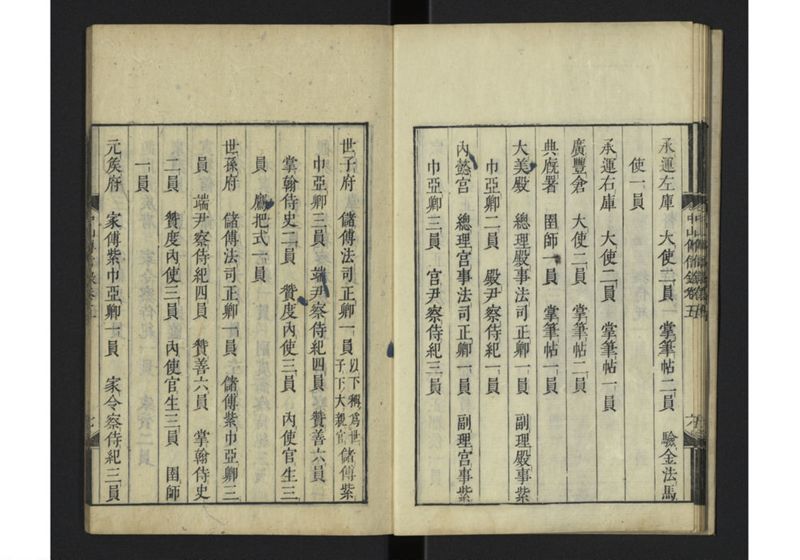 承運左庫　大使二員　掌筆帖二員　驗金法馬
使一員
承運右庫　大使二員　掌筆帖一員
廣豐倉　大使二員　掌筆帖二員
典廐署　圉師一員　掌筆帖一員
大美殿　總理殿事法司正卿一員　副理殿事紫
巾亞卿二員　殿尹察侍紀一員
內懿宮　總理宮事法司正卿一員　副理宮事紫
巾亞卿三員　宮尹察侍紀三員
中山傳信錄卷五　六
世子府　儲傅法司正卿一員以下稱爲世子下大親官儲傅紫
巾亞卿三員　端尹察侍紀四員　贊善六員
掌翰侍史二員　贊度內使三員　內使官生三
員　把式一員
世孫府　儲傅法司正卿一員　儲傅紫巾亞卿三
員　端尹察侍紀四員　贊善六員　掌翰侍史
二員　贊度內使三員　內使官生三員　圉師
一員
元侯府　家傅紫巾亞卿一員　家令察侍紀三員
七